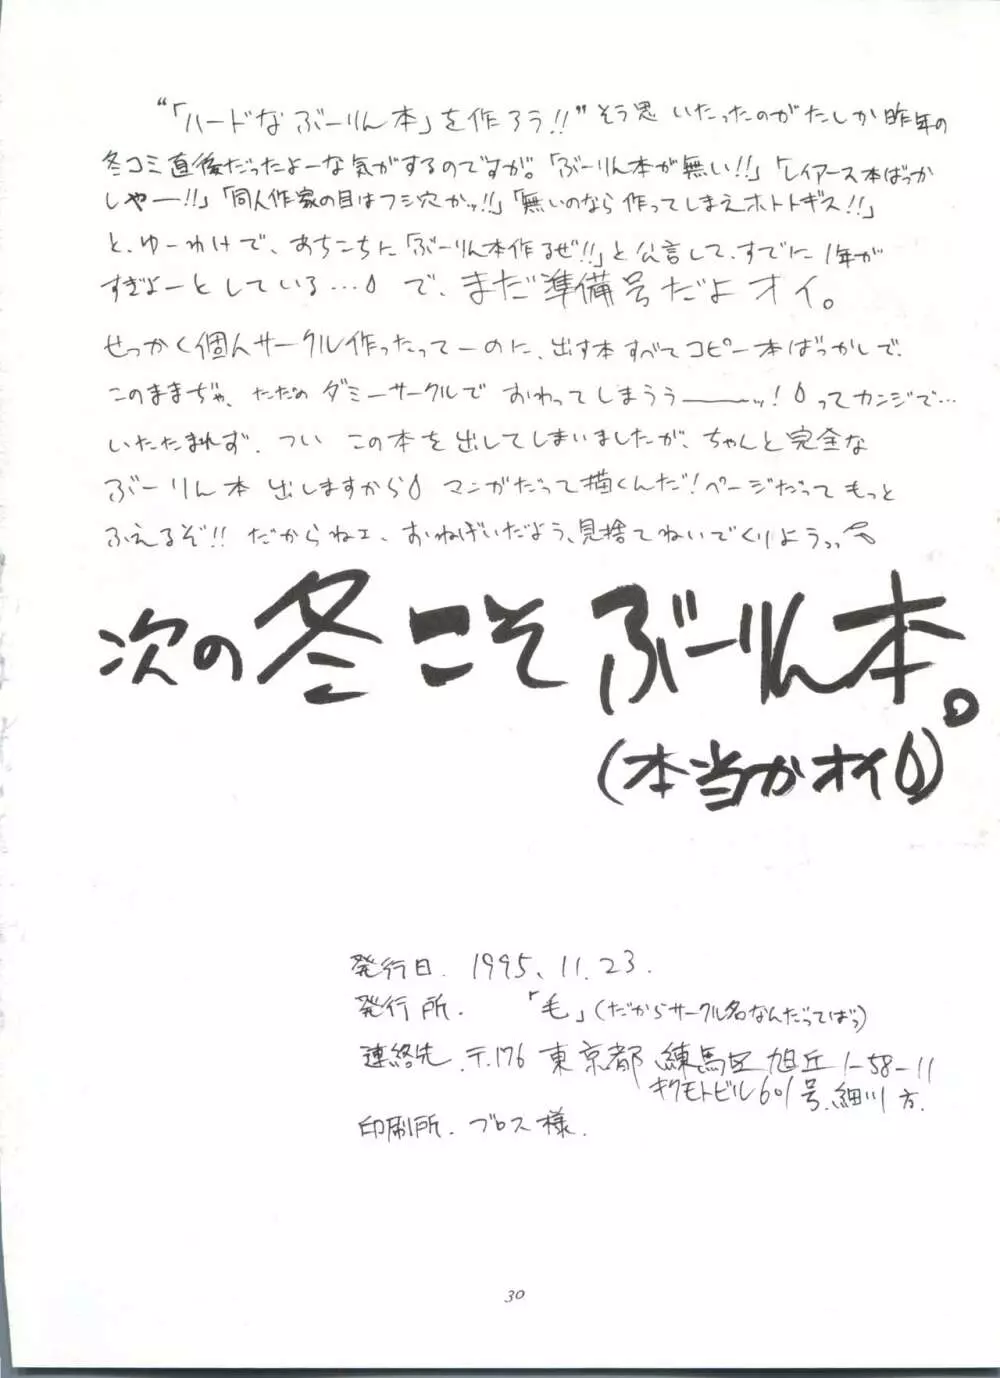 “「ハードなぶーりん本」を作ろう!!”そう思いたったのがたしか昨年の
冬コミ直後だったよーな気がするのですが。「ぶーりん本が無い!!」「レイアース本ばっか
しやー!!」「同人作家の目はフシ穴かッ!!」「無いのなら作ってしまえホトトギス!!」
と、ゆーわけで、あちこちに「ぶーりん本作るぜ!!」と公言して、すでに1年が
すぎよーとしている… で、まだ準備号だよオイ。
せっかく個人サークル作ったってーのに、出す本すべてコピー本ばっかしで、
このままぢゃ、ただの ダミーサークルで おわってしまううーーッ! ってカンジで…
いたたまれず、つい この本を出してしまいましたが、ちゃんと完全な
ぶーりん本 出しますから マンガだって描くんだ!ページだって もっと
ふえるぞ!! だからねェ、おねげいだよう、見捨てねいでくりようっっ
次の冬こそぶーりん本。
(本当かオイ)
発行日. 1995、11.23.
発行所. 「毛」(だからサークル名なんだってばっ)
連絡先. 〒176 東京都 練馬区 旭丘 1-58-11
キクモトビル601号、細川方.
印刷所. ブロス様.
30